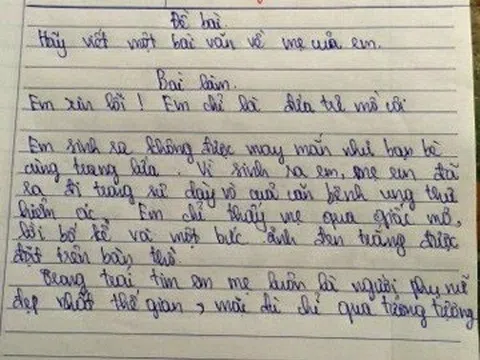 Đề bài.
Hãy viết một bài văn về mẹ của em.
Bài làm.
Em xin lỗi! Em chỉ là đứa trẻ mồ côi
Em sinh ra không được may mắn như bạn bè
cùng trang lứa. Vì sinh ra em, mẹ em đã
ra đi trong sự dày vò của căn bệnh ung thư
hiểm ác. Em chỉ thấy mẹ qua giấc mơ,
lời bố kể và một bức ảnh đen trắng được
đặt trên bàn thờ.
Trong trái tim em mẹ luôn là người phụ nữ
đẹp nhất thế gian, mặc dù chỉ qua tưởng tượng